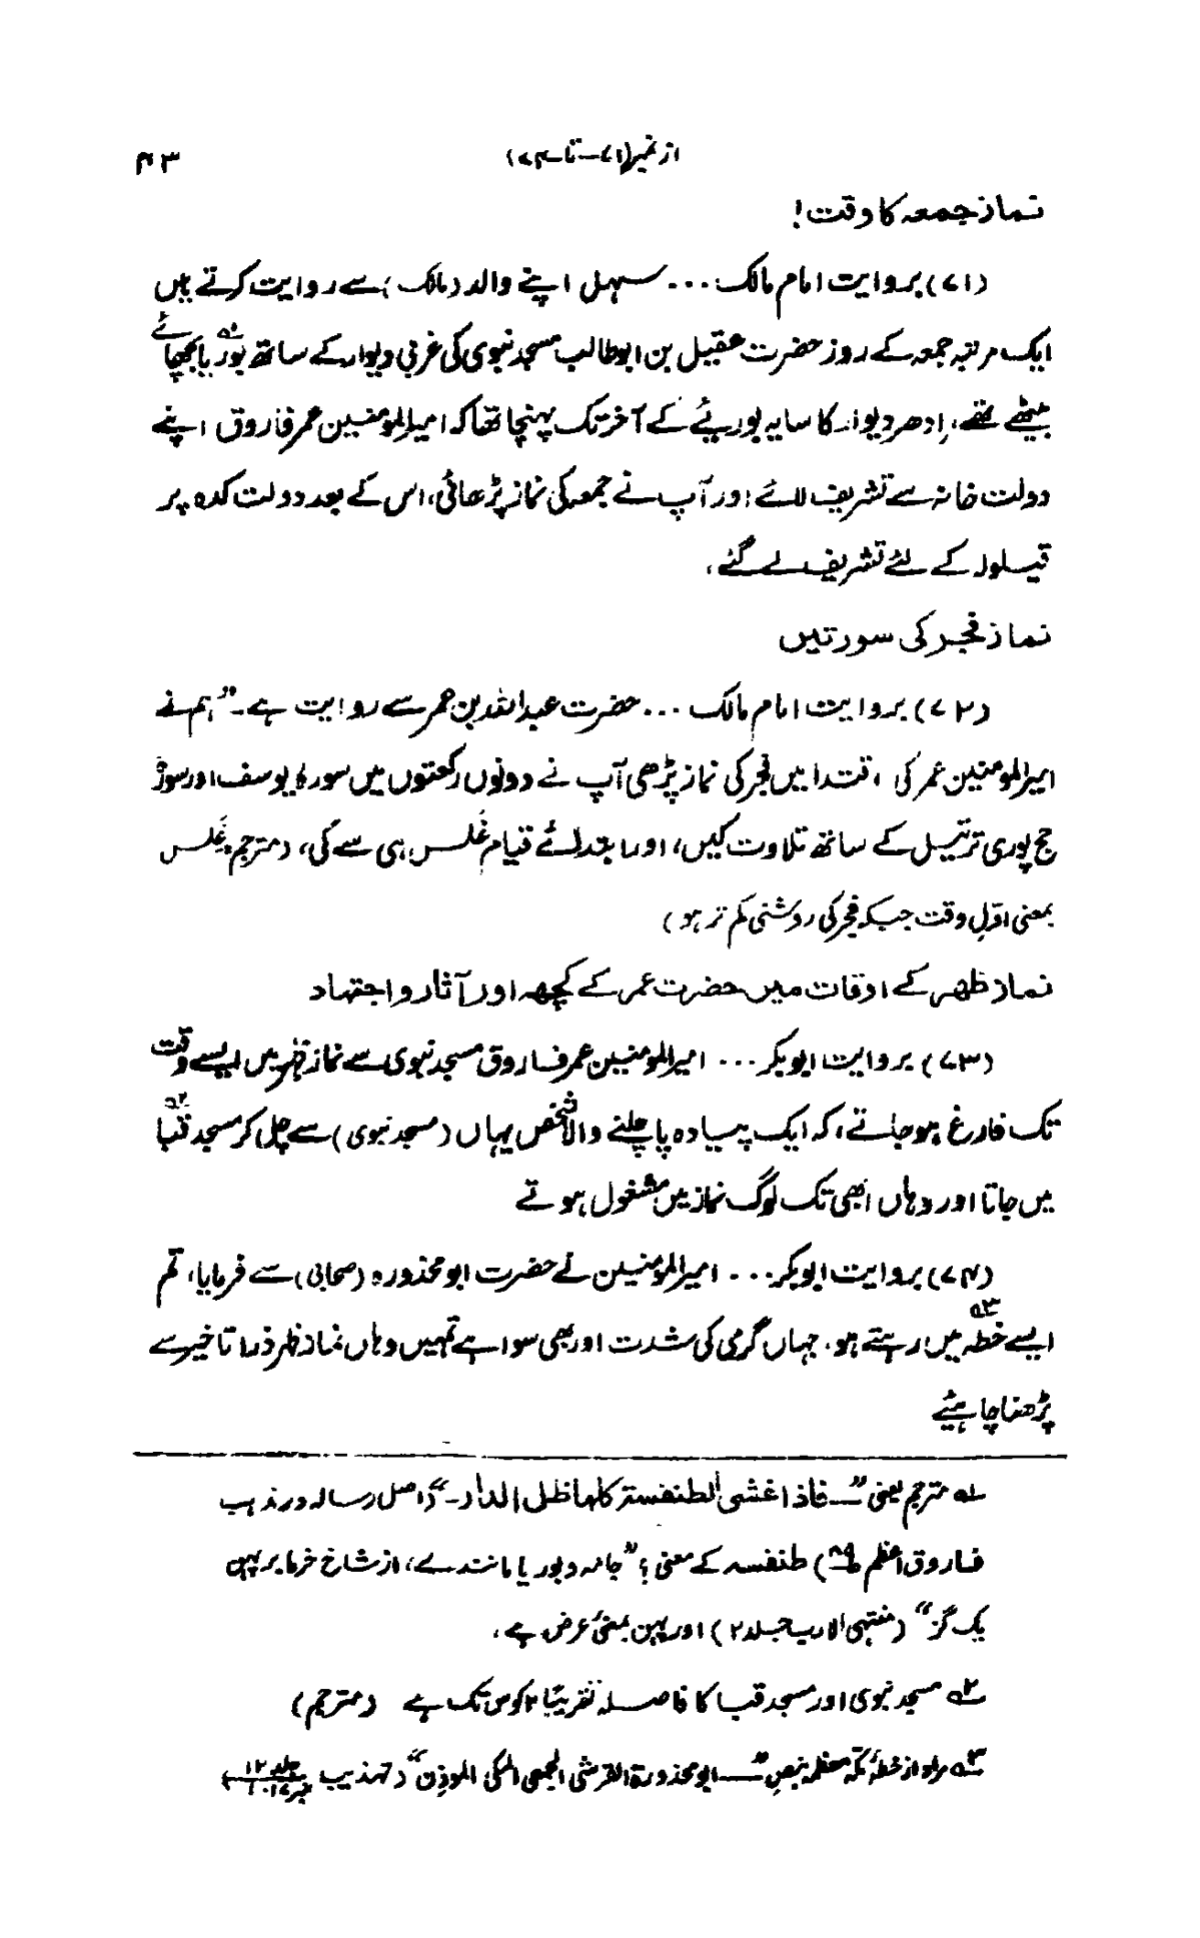 از نمبر (۷۱ - تا - ۷۴)
۴۳
نماز جمعہ کا وقت!
(۷۱) بروایت امام مالک ... سہل اپنے والد (مالک) سے روایت کرتے ہیں
ایک مرتبہ جمعہ کے روز حضرت عقیل بن ابوطالب مسجد نبوی کی غربی دیوار کے ساتھ بوریا۱؎ بچھائے
بیٹھے تھے، ادھر دیوار کا سایہ بوریئے کے آخر تک پہنچا تھا کہ امیرالمومنین عمر فاروق اپنے
دولت خانہ سے تشریف لائے اور آپ نے جمعہ کی نماز پڑھائی، اس کے بعد دولت کدہ پر
قیلولہ کے لئے تشریف لے گئے،
نماز فجر کی سورتیں
(۷۲) بروایت امام مالک ... حضرت عبداللہ بن عمر سے روایت ہے۔ "ہم نے
امیرالمومنین عمر کی اقتدا میں فجر کی نماز پڑھی آپ نے دونوں رکعتوں میں سورۂ یوسف اور سورۂ
حج پوری ترتیل کے ساتھ تلاوت کیں، اور ابتدائے قیام غَلس ہی سے کی، (مترجم، غَلس
بمعنی اوّل وقت جبکہ فجر کی روشنی کم تر ہو)
نماز ظہر کے اوقات میں حضرت عمر کے کچھ اور آثار و اجتہاد
(۷۳) بروایت ابوبکر ... امیرالمومنین عمر فاروق مسجد نبوی سے نماز ظہر میں ایسے وقت
تک فارغ ہو جاتے، کہ ایک پیادہ پا چلنے والا شخص یہاں (مسجد نبوی) سے چل کر مسجد قبا۲؎
میں جاتا اور وہاں ابھی تک لوگ نماز میں مشغول ہوتے
(۷۴) بروایت ابوبکر ... امیرالمومنین نے حضرت ابو محذورہ (صحابی) سے فرمایا، تم
ایسے خطہ۳؎ میں رہتے ہو۔ جہاں گرمی کی شدت اور بھی سوا ہے تمہیں وہاں نماز ظہر ذرا تاخیر سے
پڑھنا چاہیئے
۱؎ مترجم یعنی "ــ فاذا غشی الطنفسۃ کلہا ظل الدار۔" (اصل رسالہ در مذہب
فاروق اعظم ص۸۹) طنفسہ کے معنی؟ "جامہ و بوریا مانندے، از شاخ خرما بر پہن
یک گز" (منتہی الارب جلد ۲) اور پہن بمعنیٔ عرض ہے،
۲؎ مسجد نبوی اور مسجد قبا کا فاصلہ تقریبًا ۲ کوس تک ہے (مترجم)
۳؎ مراد از خطۂ مکہ معظمہ بنص "ــ ابو محذورۃ القرشی الجمحی المکی الموذن" (تہذیب جلد ۱۲